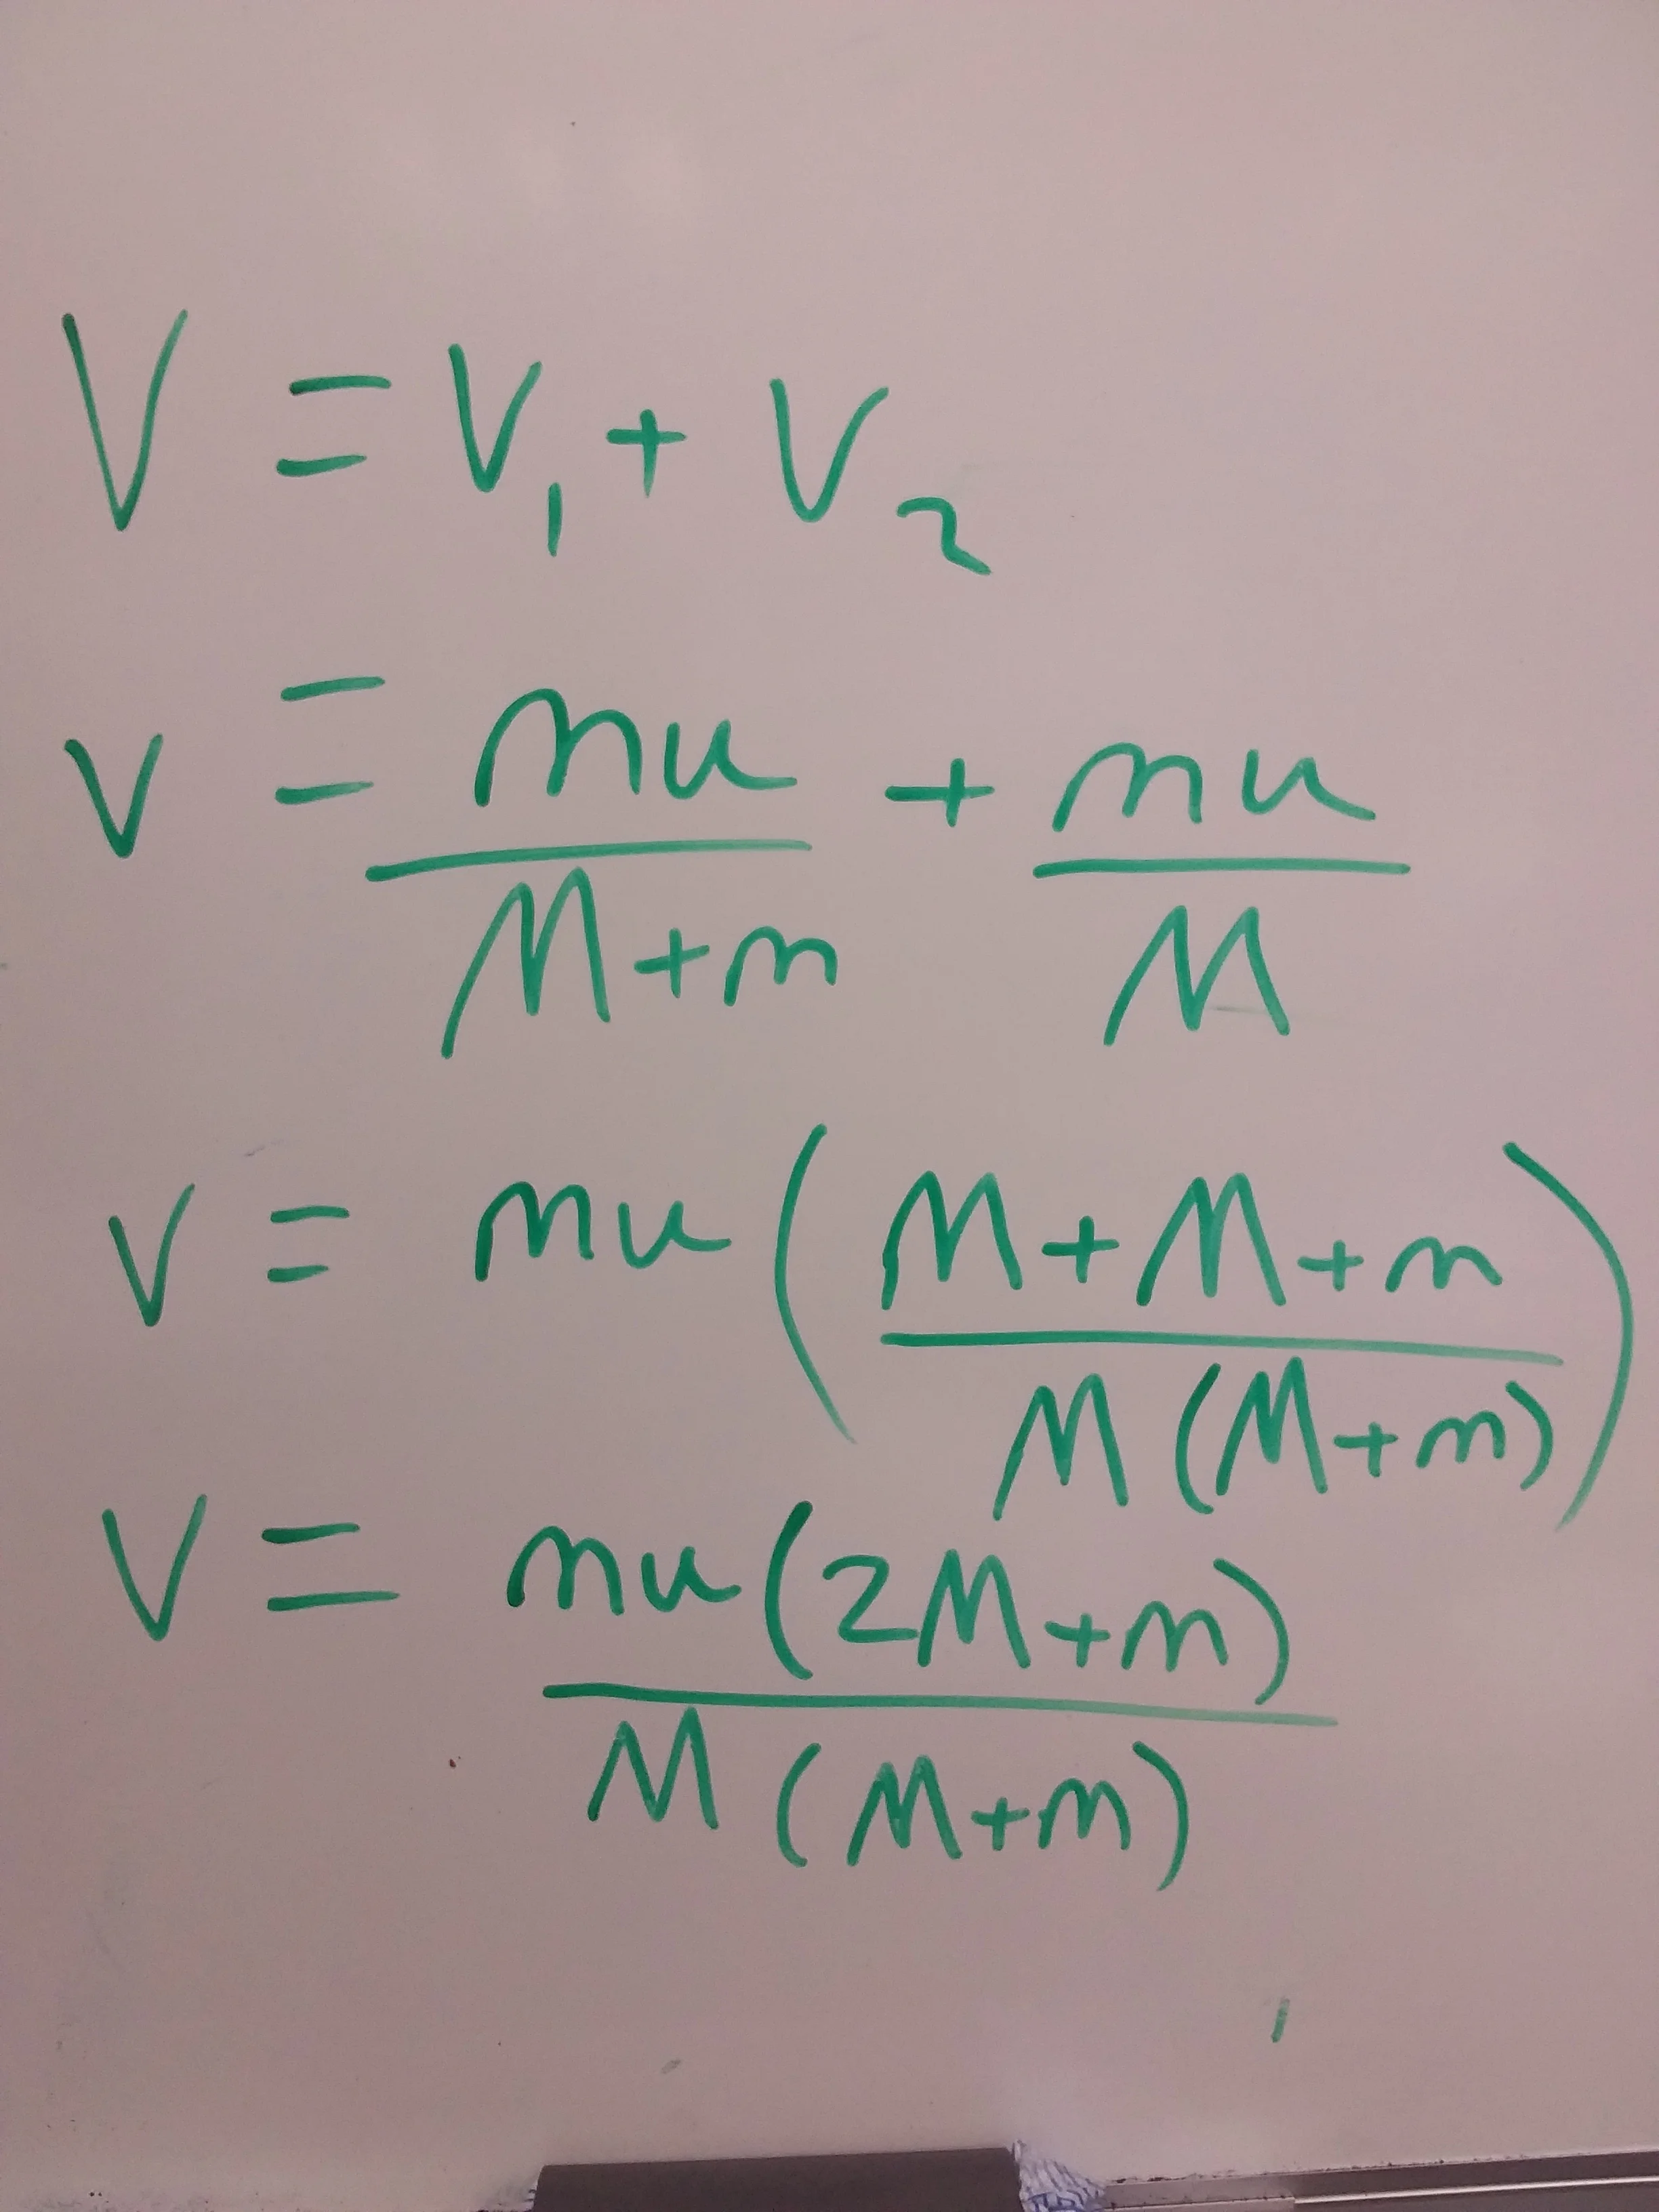 V = V₁ + V₂
V = mu/(M+m) + mu/M
V = mu((M+M+m)/(M(M+m)))
V = mu(2M+m)/(M(M+m))